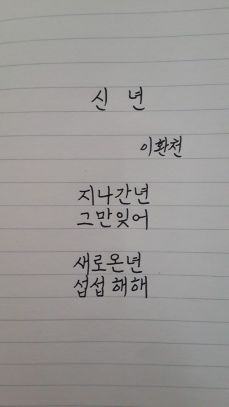 신 년
이환천
지나간년
그만잊어
새로온년
섭섭해해